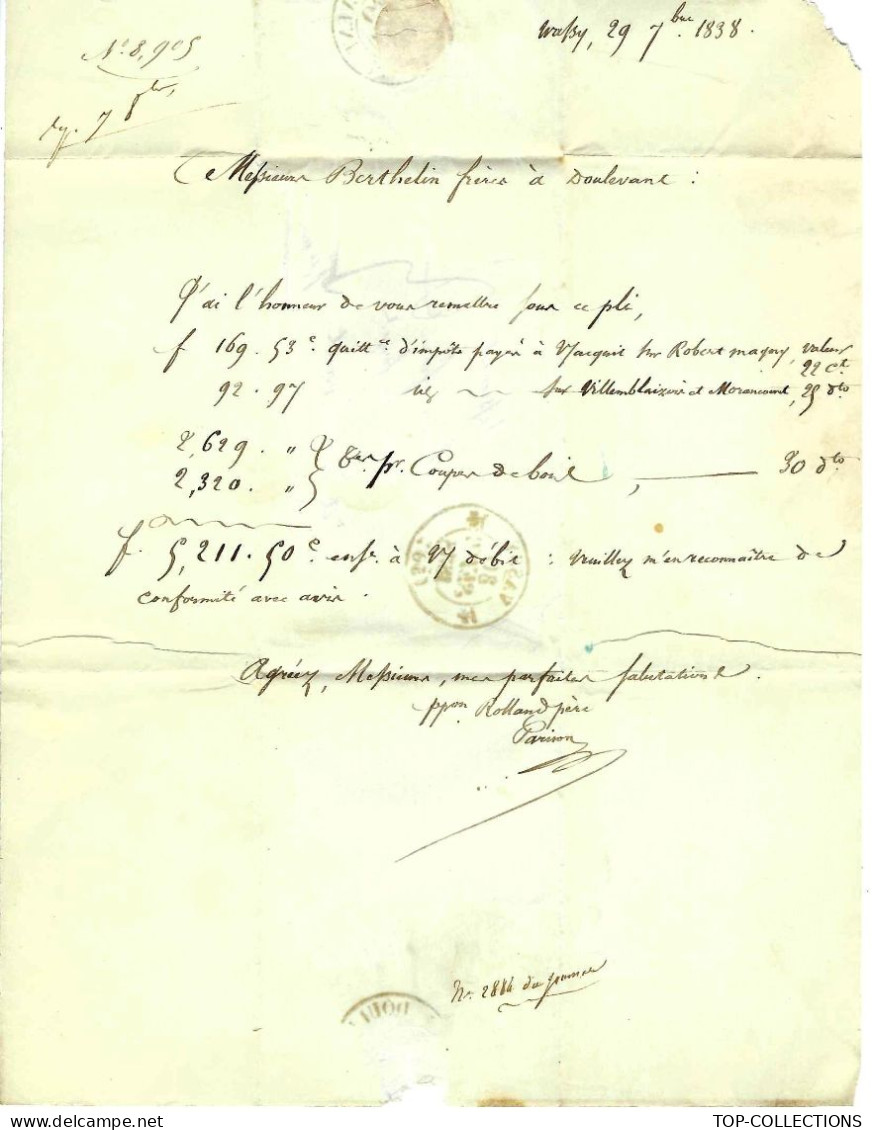 N.° 8,905
Wassy, 29 7bre 1838.
rp. 7 8bre,
Messieurs Berthelin frères à Doulevant :
J'ai l'honneur de vous remettre sous ce pli,
f 169. 53 c. quitt.ce d'impôts payés à sur Robert magny, valeur
22 ct
92. 97 id sur Villemblaizois et Morancourt, 25 dto
2,629. "
2,320. " pr. Coupes de bois, 30 dto
f. 5,211. 50 c ens. à V/ débit : Veuillez m'en reconnaître de
conformité avec avis.
Agréez, Messieurs, mes parfaites salutations.
ppon Rolland père
Parison
N. 2884 du
TOP-COLLECTIONS